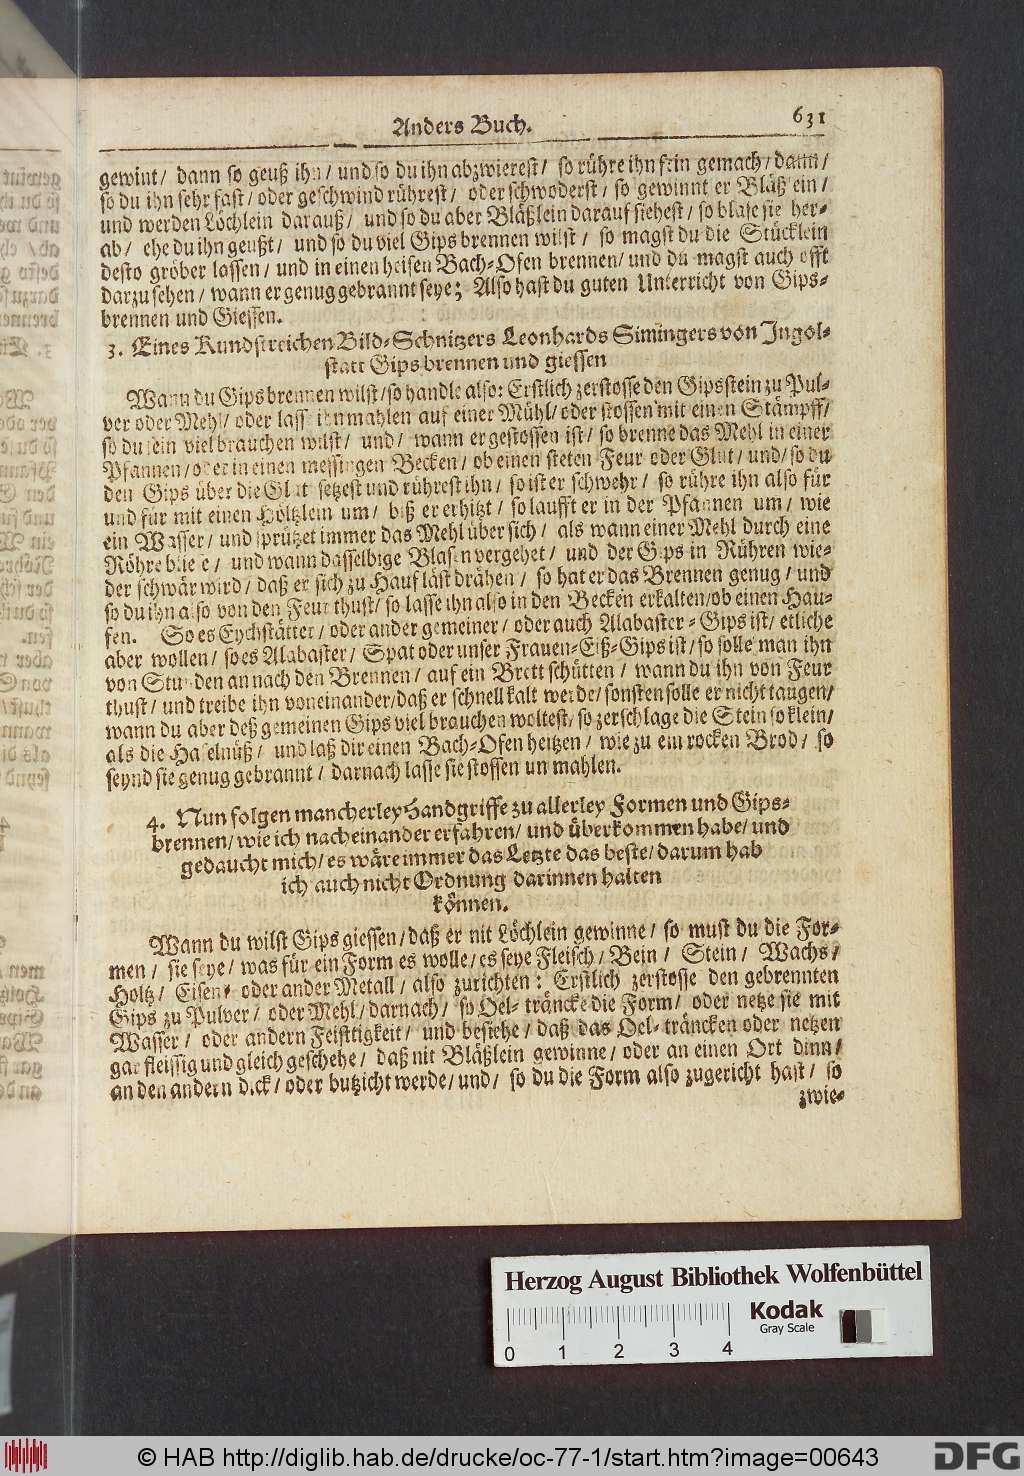 Anders Buch. 631
gewint/ dann so geuß ihn/ und so du ihn abzwierest/ so rühre ihn fein gemach/ dann/
so du ihn sehr fast/ oder geschwind rührest/ oder schwoderst/ so gewinnt er Bläß ein/
und werden Löchlein darauß/ und so du aber Bläßlein darauf siehest/ so blase sie her-
ab/ ehe du ihn geußt/ und so du viel Gips brennen wilst/ so magst du die Stücklein
desto gröber lassen/ und in einen heisen Bach-Ofen brennen/ und du magst auch offt
darzu sehen/ wann er genug gebrannt seye; Also hast du guten Unterricht von Gips-
brennen und Giessen.
3. Eines Kunstreichen Bild-Schnitzers Leonhards Simingers von Ingol-
statt Gips brennen und giessen
Wann du Gips brennen wilst/ so handle also: Erstlich zerstosse den Gipsstein zu Pul-
ver oder Mehl/ oder lass ihn mahlen auf einer Mühl/ oder stossen mit einen Stämpff/
so du sein viel brauchen wilst/ und/ wann er gestossen ist/ so brenne das Mehl in einer
Pfannen/ oder in einen messingen Becken/ ob einen steten Feur oder Glut/ und/ so du
den Gips über die Glut setzest und rührest ihn/ so ist er schwehr/ so rühre ihn also für
und für mit einen Höltzlein um/ biß er erhitzt/ so laufft er in der Pfannen um/ wie
ein Wasser/ und sprützet immer das Mehl über sich/ als wann einer Mehl durch eine
Röhre bliese/ und wann dasselbige Blasen vergehet/ und der Gips in Rühren wie-
der schwär wird/ daß er sich zu Hauf läst drähen/ so hat er das Brennen genug/ und
so du ihn also von den Feur thust/ so lasse ihn also in den Becken erkalten/ ob einen Hau-
fen. So es Eychstätter/ oder ander gemeiner/ oder auch Alabaster-Gips ist/ etliche
aber wollen/ so es Alabaster/ Spat oder unser Frauen-Eiß-Gips ist/ so solle man ihn
von Stunden an nach den Brennen/ auf ein Brett schütten/ wann du ihn von Feur
thust/ und treibe ihn voneinander/ daß er schnell kalt werde/ sonsten solle er nicht taugen/
wann du aber deß gemeinen Gips viel brauchen woltest/ so zerschlage die Stein so klein/
als die Haselnüß/ und laß dir einen Bach-Ofen heitzen/ wie zu ein rocken Brod/ so
seynd sie genug gebrannt/ darnach lasse sie stossen un mahlen.
4. Nun folgen mancherley Handgriffe zu allerley Formen und Gips-
brennen/ wie ich nacheinander erfahren/ und überkommen habe/ und
gedaucht mich/ es wäre immer das Letzte das beste/ darum hab
ich auch nicht Ordnung darinnen halten
können.
Wann du wilst Gips giessen/ daß er nit Löchlein gewinne/ so must du die For-
men/ sie seye/ was für ein Form es wolle/ es seye Fleisch/ Bein/ Stein/ Wachs/
Holtz/ Eisen/ oder ander Metall/ also zurichten: Erstlich zerstosse den gebrennten
Gips zu Pulver/ oder Mehl/ darnach/ so Oel-träncke die Form/ oder netze sie mit
Wasser/ oder andern Feisttigkeit/ und bestehe/ daß das Oel-träncken oder netzen
gar fleissig und gleich geschehe/ daß nit Bläßlein gewinne/ oder an einen Ort dinn/
an den andern dick/ oder butzicht werde/ und/ so du die Form also zugericht hast/ so
zwie-
Herzog August Bibliothek Wolfenbüttel
Kodak
Gray Scale
0 1 2 3 4
© HAB http://diglib.hab.de/drucke/oc-77-1/start.htm?image=00643
DFG